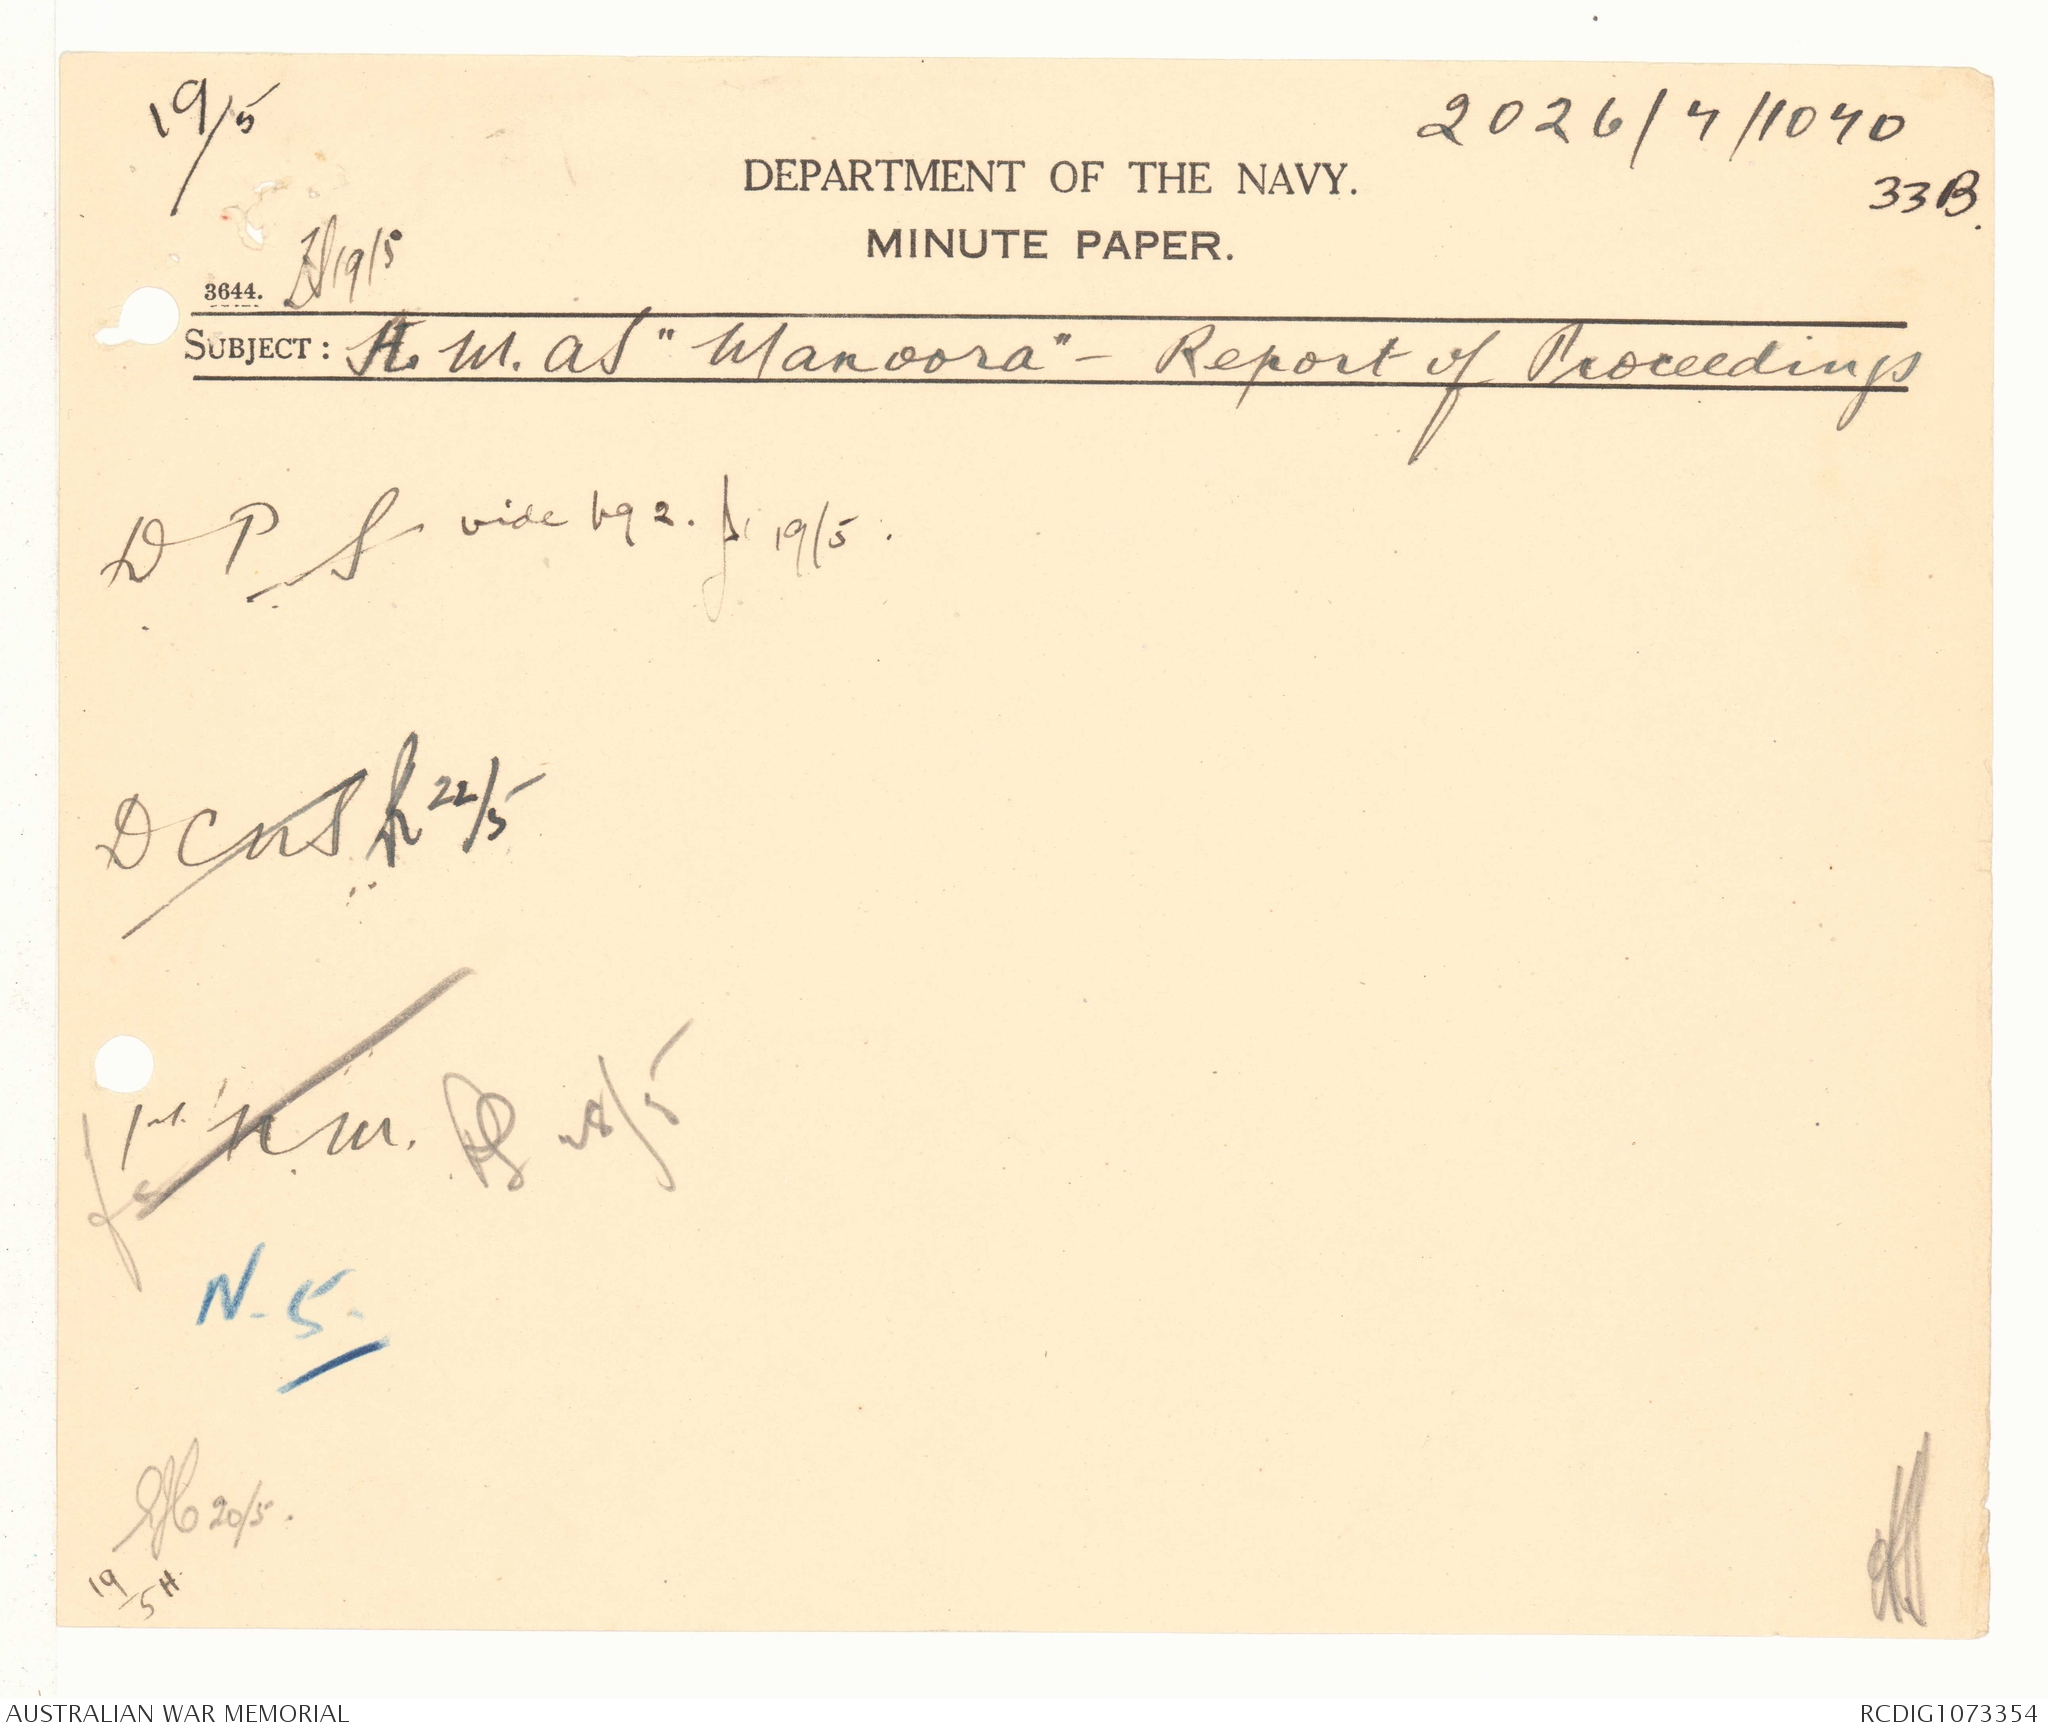 19/5
2026/4/1040
33B.
DEPARTMENT OF THE NAVY.
MINUTE PAPER.
3644.
19/5
SUBJECT: H.M.AS "Manoora" - Report of Proceedings
DPS vide pg 2. 19/5.
DCNS 22/5
1st N.M. 28/5
N-5-
20/5.
19/5 H
AUSTRALIAN WAR MEMORIAL
RCDIG1073354